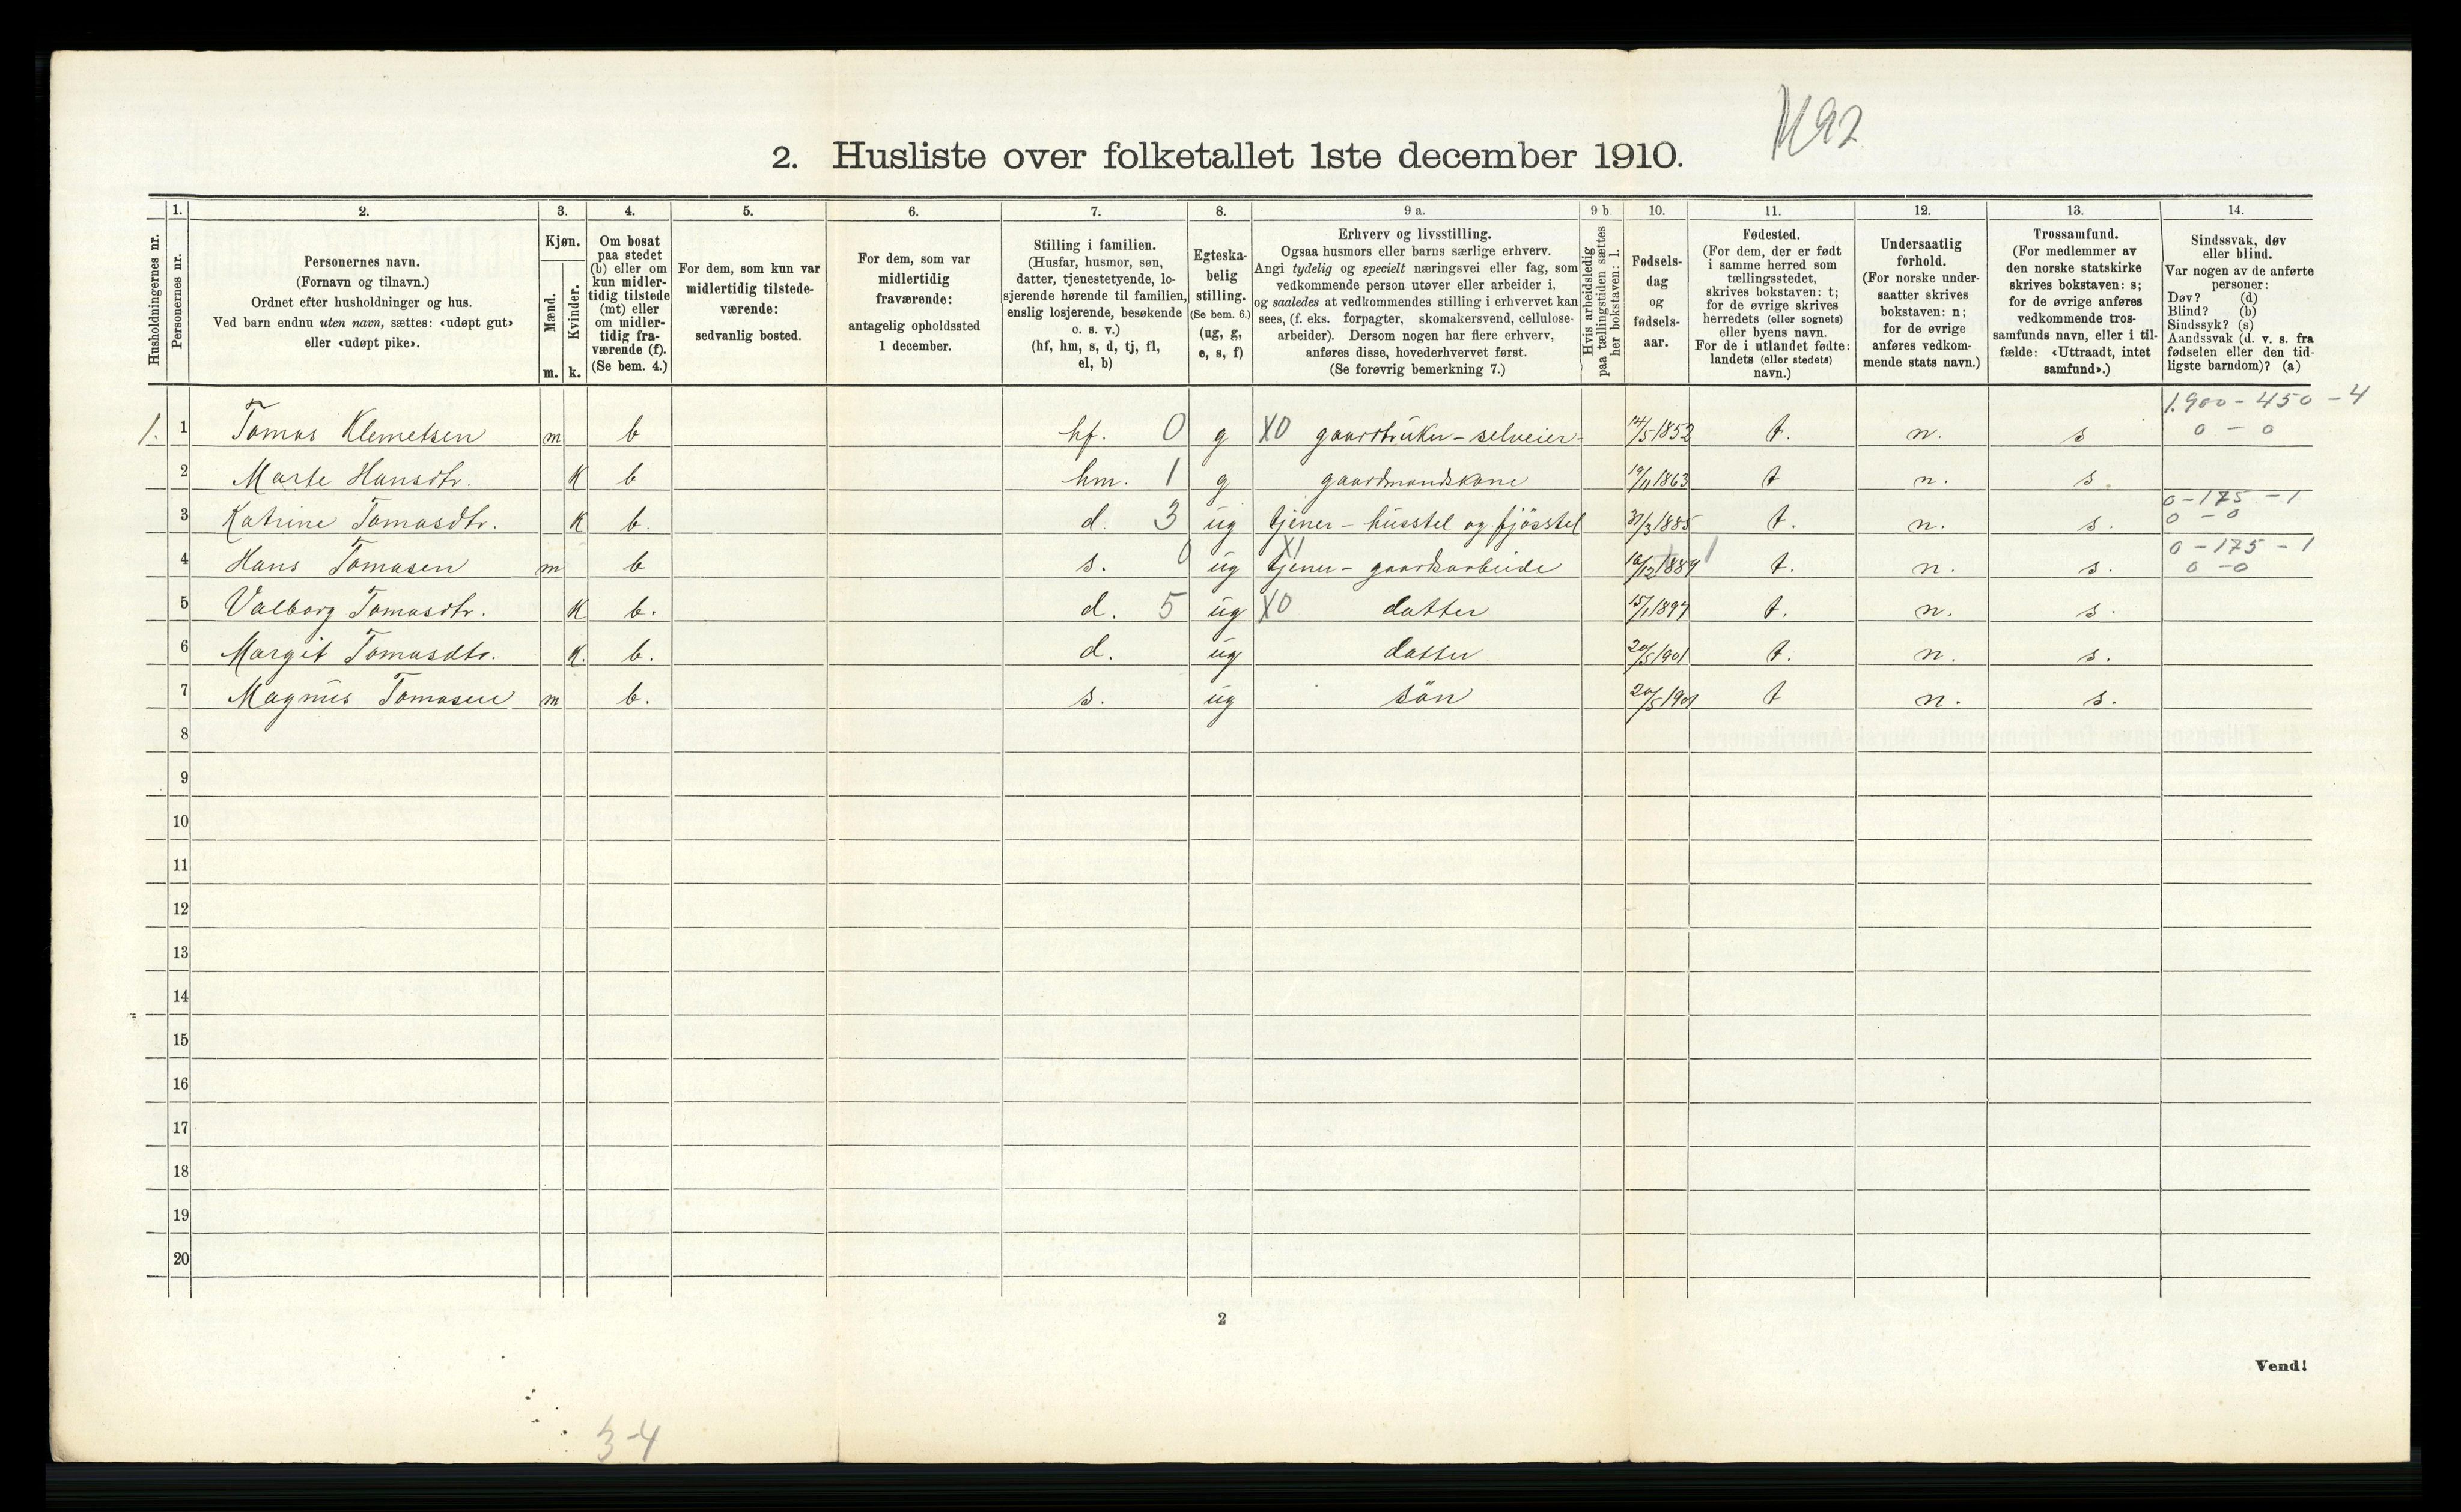 K92
2. Husliste over folketallet 1ste december 1910.
Husholdningernes nr.
1.
Personernes nr.
2.
Personernes navn.
(Fornavn og tilnavn.)
Ordnet efter husholdninger og hus.
Ved barn endnu uten navn, sættes: «udøpt gut»
eller «udøpt pike».
3.
Kjøn.
Mænd.
Kvinder.
m. k.
4.
Om bosat
paa stedet
(b) eller om
kun midler-
tidig tilstede
(mt) eller
om midler-
tidig fra-
værende (f).
(Se bem. 4.)
5.
For dem, som kun var
midlertidig tilstede-
værende:
sedvanlig bosted.
6.
For dem, som var
midlertidig
fraværende:
antagelig opholdssted
1 december.
7.
Stilling i familien.
(Husfar, husmor, søn,
datter, tjenestetyende, lo-
sjerende hørende til familien,
enslig losjerende, besøkende
o. s. v.)
(hf, hm, s, d, tj, fl,
el, b)
8.
Egteska-
belig
stilling.
(Se bem. 6.)
(ug, g,
e, s, f)
9 a.
Erhverv og livsstilling.
Ogsaa husmors eller barns særlige erhverv.
Angi tydelig og specielt næringsvei eller fag, som
vedkommende person utøver eller arbeider i,
og saaledes at vedkommendes stilling i erhvervet kan
sees, (f. eks. forpagter, skomakersvend, cellulose-
arbeider). Dersom nogen har flere erhverv,
anføres disse, hovederhvervet først.
(Se forøvrig bemerkning 7.)
9 b.
Hvis arbeidsledig
paa tællingstiden sættes
her bokstaven: l.
10.
Fødsels-
dag
og
fødsels-
aar.
11.
Fødested.
(For dem, der er født
i samme herred som
tællingsstedet,
skrives bokstaven: t;
for de øvrige skrives
herredets (eller sognets)
eller byens navn.
For de i utlandet fødte:
landets (eller stedets)
navn.)
12.
Undersaatlig
forhold.
(For norske under-
saatter skrives
bokstaven: n;
for de øvrige
anføres vedkom-
mende stats navn.)
13.
Trossamfund.
(For medlemmer av
den norske statskirke
skrives bokstaven: s;
for de øvrige anføres
vedkommende tros-
samfunds navn, eller i til-
fælde: «Uttraadt, intet
samfund».)
14.
Sindssvak, døv
eller blind.
Var nogen av de anførte
personer:
Døv? (d)
Blind? (b)
Sindssyk? (s)
Aandssvak (d. v. s. fra
fødselen eller den tid-
ligste barndom)? (a)
1. 1 Tomas Klemetsen m b hf. 0 g X0 gaardbruker - selveier - 14/5 1852 t. n. s 1.900 - 450 - 4 0 - 0
2 Marte Hansdtr. K b hm. 1 g gaardmandskone 19/11 1863 t n. s.
3 Katrine Tomasdtr. K b. d. 3 ug tjener - husstel og fjösstel 31/3 1885 t. n. s. 0 - 175 - 1 0 - 0
4 Hans Tomasen m b s. 0 ug X1 tjener - gaardsarbeide 10/12 1889 1 t. n. s. 0 - 175 - 1 0 - 0
5 Valborg Tomasdtr. K b. d. 5 ug X0 datter 15/1 1897 t. n. s.
6 Margit Tomasdtr. K. b. d. ug datter 20/5 1901 t. n. s.
7 Magnus Tomasen m b. s. ug sön 20/5 1901 t n. s.
8
9
10
11
12
13
14
15
16
17
18
19
20
2
Vend!
3-4